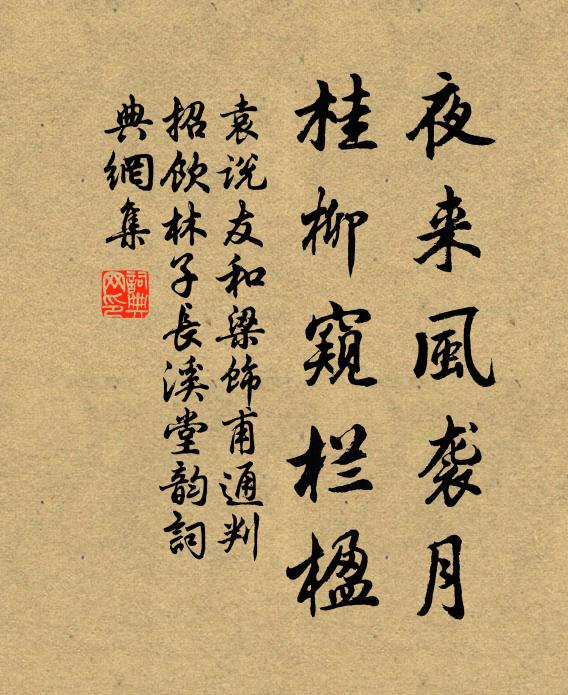 夜来風袭月
桂柳窺栏楹
袁说友和梁饰甫通判
招饮林子長溪堂韵詞
典網集
詞典
网印